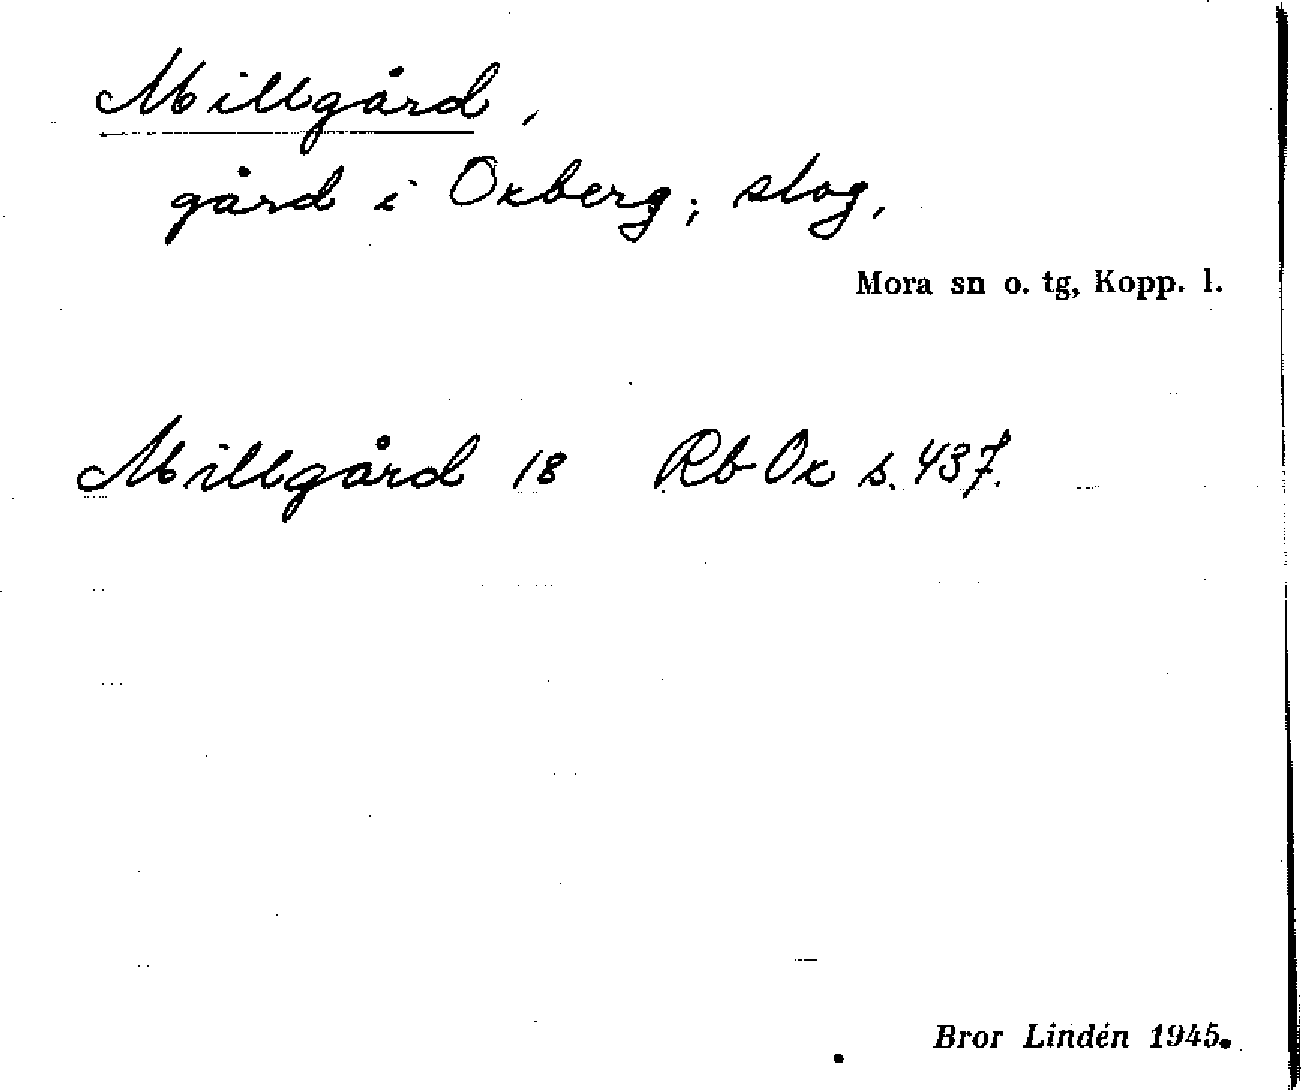 Millgård,
gård i Oxberg; slog,
Mora sn o. tg, Kopp. l.
Millgård 18 Rb Ox s. 437.
Bror Lindén 1945.